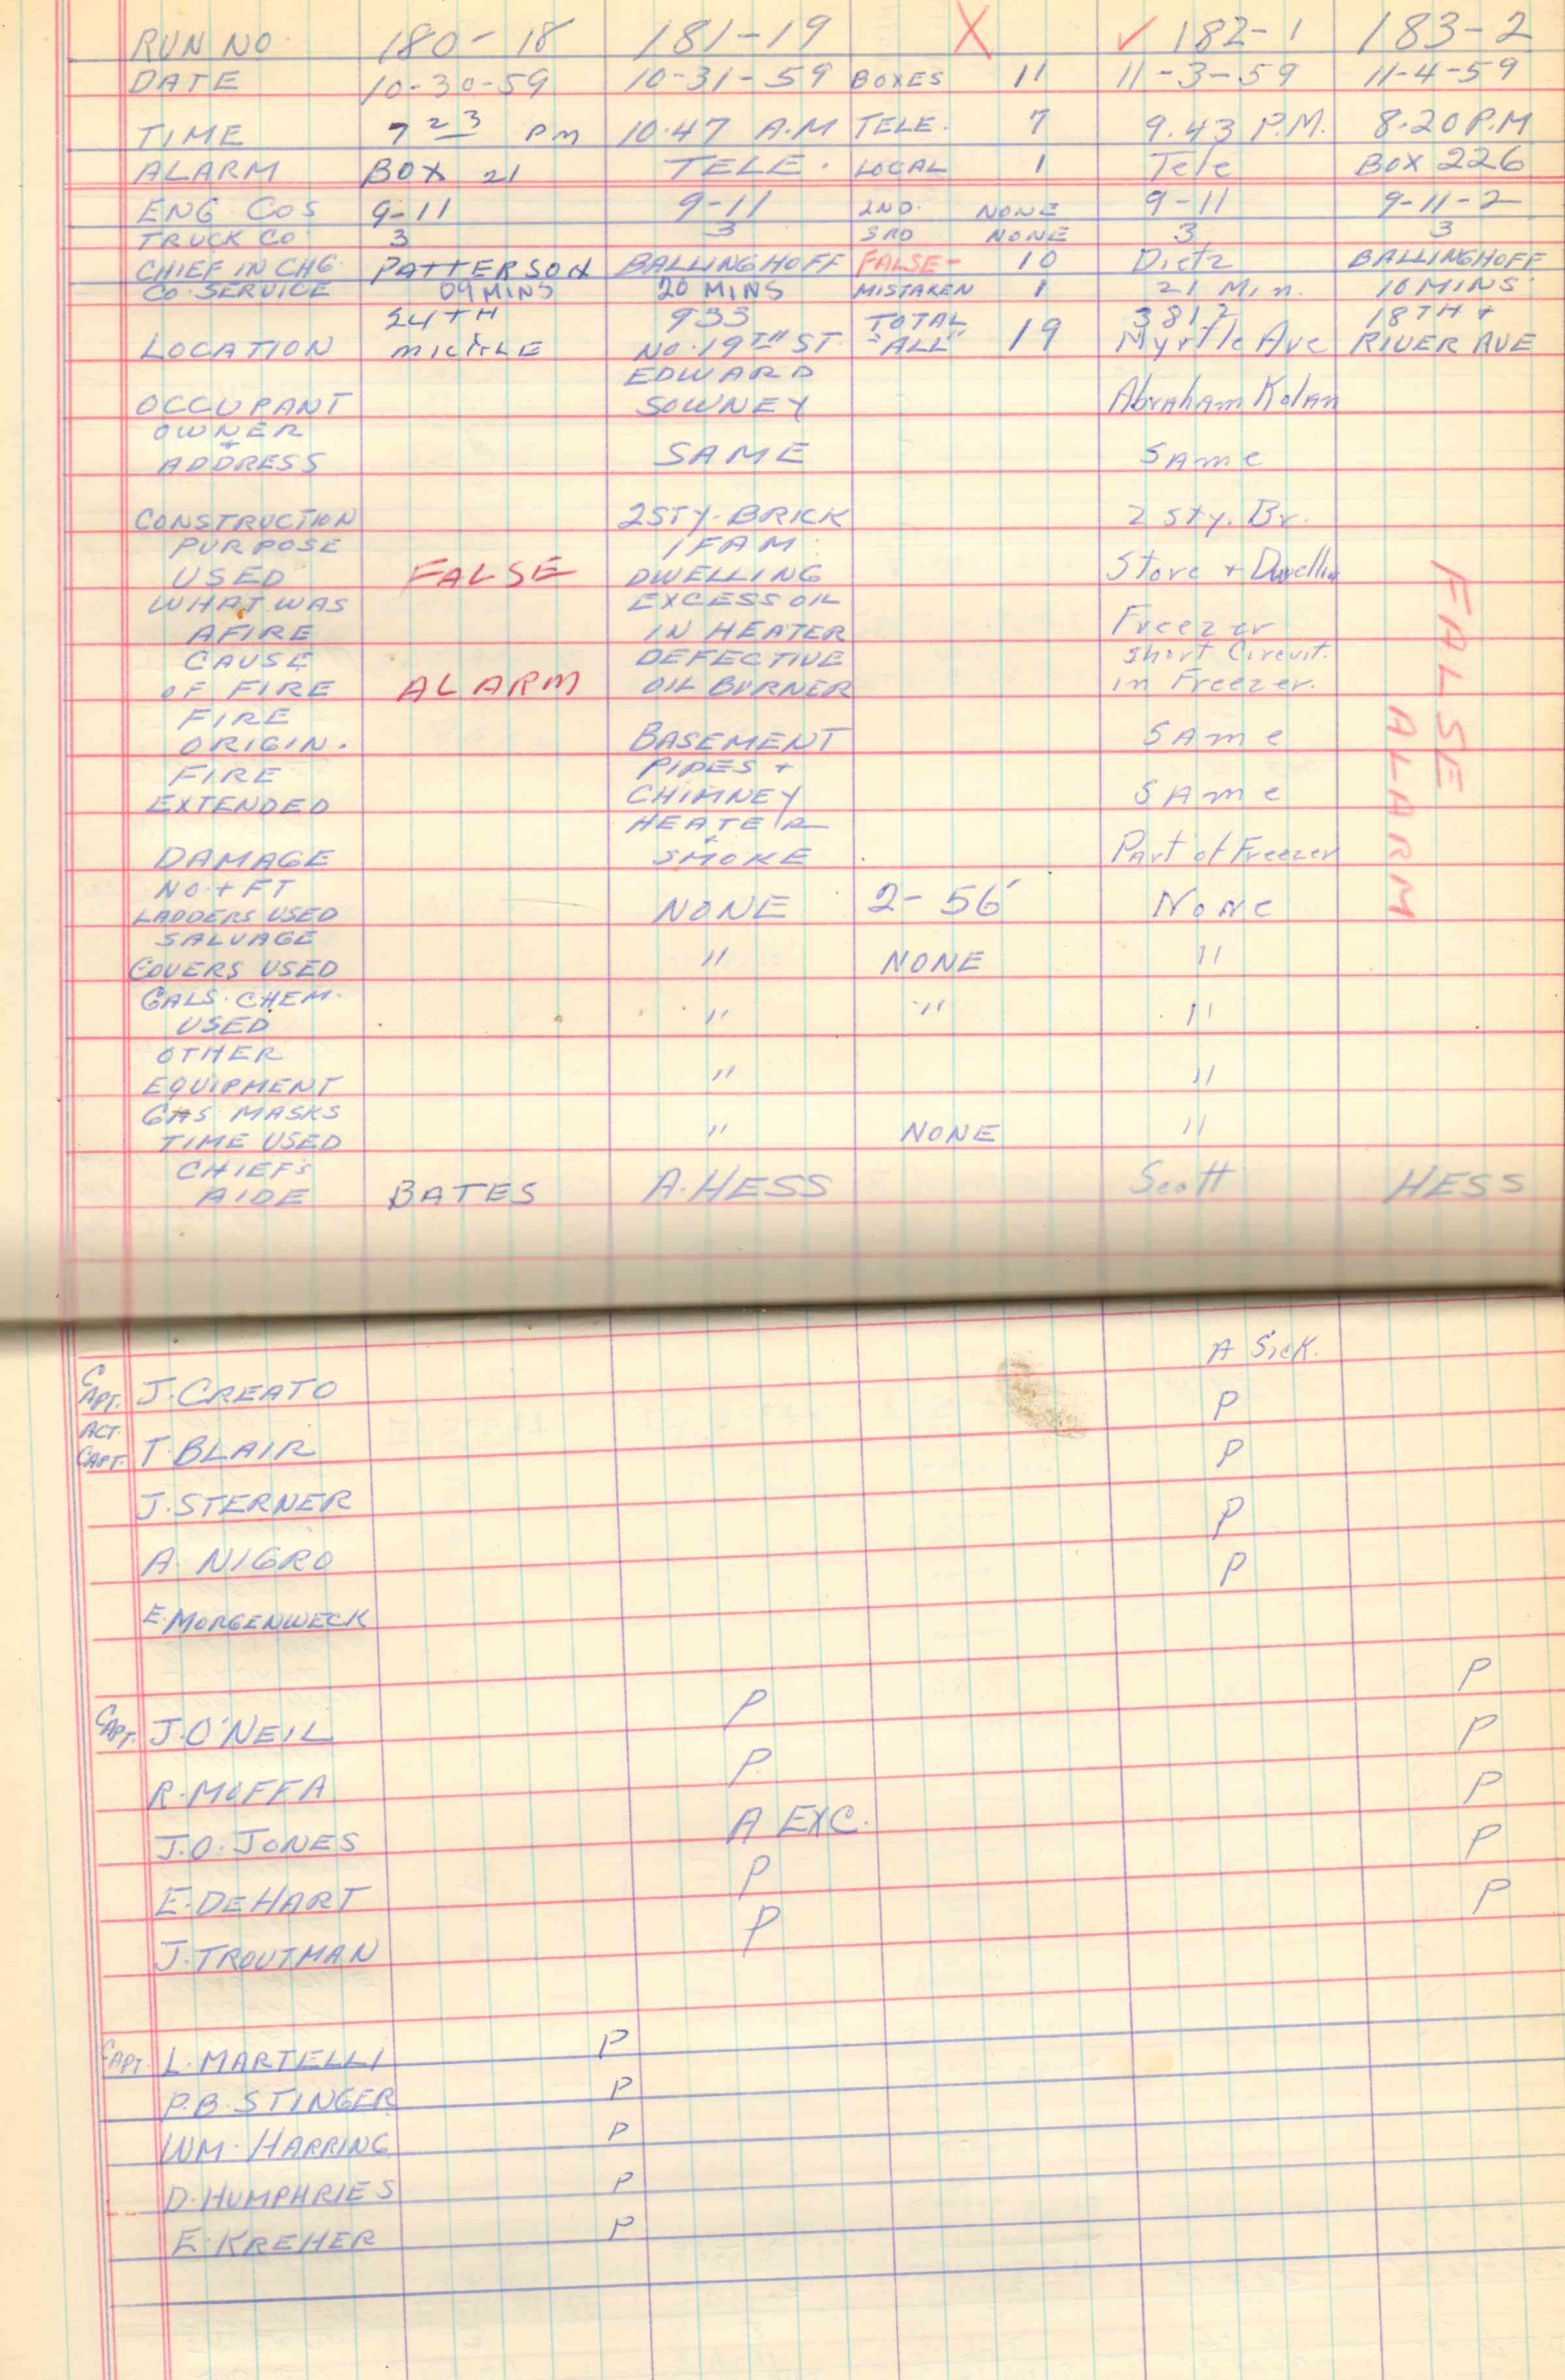 RUN NO. 180-18 181-19 X ✓ 182-1 183-2
DATE 10-30-59 10-31-59 BOXES 11 11-3-59 11-4-59
TIME 7 23 PM 10.47 A.M TELE. 7 9.43 P.M. 8.20 P.M
ALARM BOX 21 TELE. LOCAL 1 Tele BOX 226
ENG. COS 9-11 9-11 2ND. NONE 9-11 9-11-2
TRUCK CO 3 3 3RD NONE 3 3
CHIEF IN CHG. PATTERSON BALLINGHOFF FALSE- 10 Dietz BALLINGHOFF
CO. SERVICE 09 MINS 20 MINS MISTAKEN 1 21 Min. 10 MINS
24TH 933 TOTAL 3812 18TH +
LOCATION MICKLE NO. 19TH ST. "ALL" 19 Myrtle Ave RIVER AVE
EDWARD
OCCUPANT SOWNEY Abraham Kolan
OWNER
+
ADDRESS SAME SAme
CONSTRUCTION 2 STY-BRICK 2 sty. Br.
PURPOSE 1 FAM.
USED FALSE DWELLING Store + Dwellin
WHAT WAS EXCESS OIL
AFIRE IN HEATER Freezer
CAUSE DEFECTIVE Short Circuit.
OF FIRE ALARM OIL BURNER in Freezer.
FIRE
ORIGIN. BASEMENT SAme
FIRE PIPES +
EXTENDED CHIMNEY SAme
HEATER
+
DAMAGE SMOKE Part of Freezer
FALSE
ALARM
NO. + FT
LADDERS USED NONE 2-56' None
SALVAGE
COVERS USED " NONE "
GALS. CHEM.
USED " " "
OTHER
EQUIPMENT " "
GAS MASKS
TIME USED " NONE "
CHIEF'S
AIDE BATES A. HESS Scott HESS
A Sick.
CAPT. J. CREATO P
ACT.
CAPT. T. BLAIR P
J. STERNER P
A. NIGRO P
E. MORGENWECK
P
CAPT. J. O'NEIL P P
R. MOFFA P P
J.O. JONES A EXC. P
E. DEHART P P
J. TROUTMAN P
CAPT. L. MARTELLI P
P.B. STINGER P
WM. HARRING P
D. HUMPHRIES P
E. KREHER P